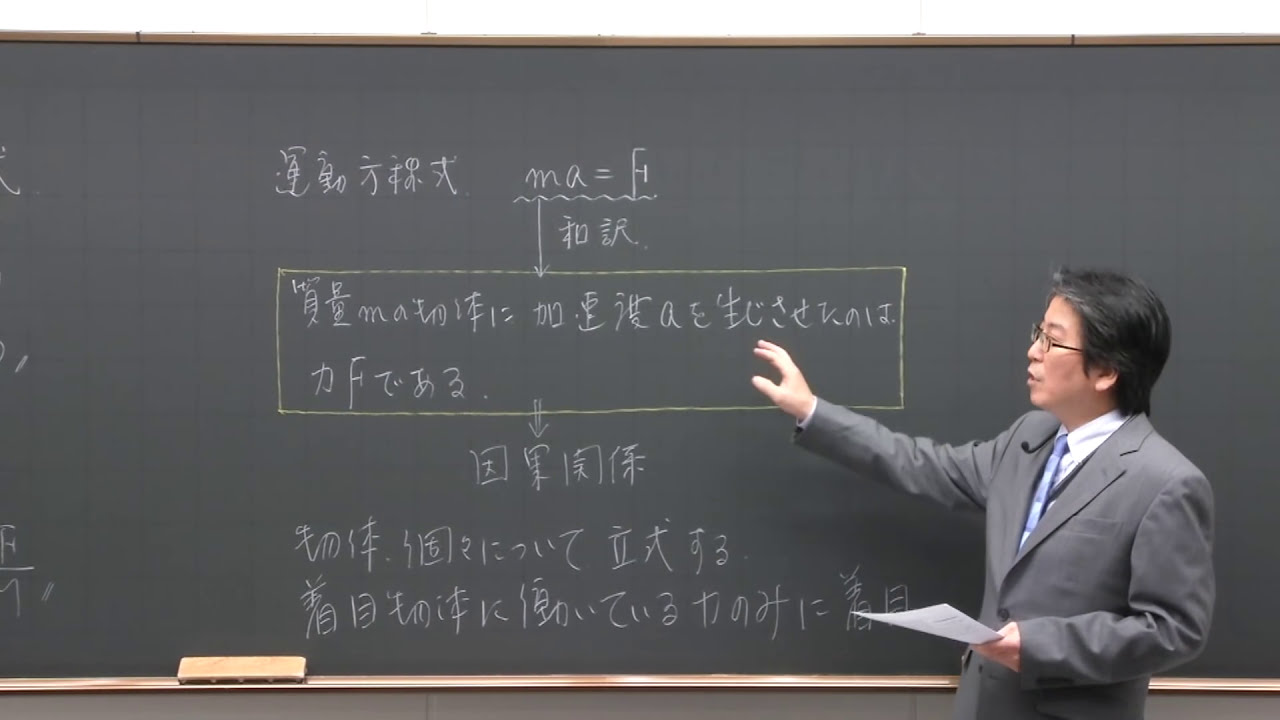 運動方程式 ma=F
和訳.
質量mの物体に加速度aを生じさせたのは
力Fである.
因果関係
物体個々について立式する.
着目物体に働いている力のみに着目